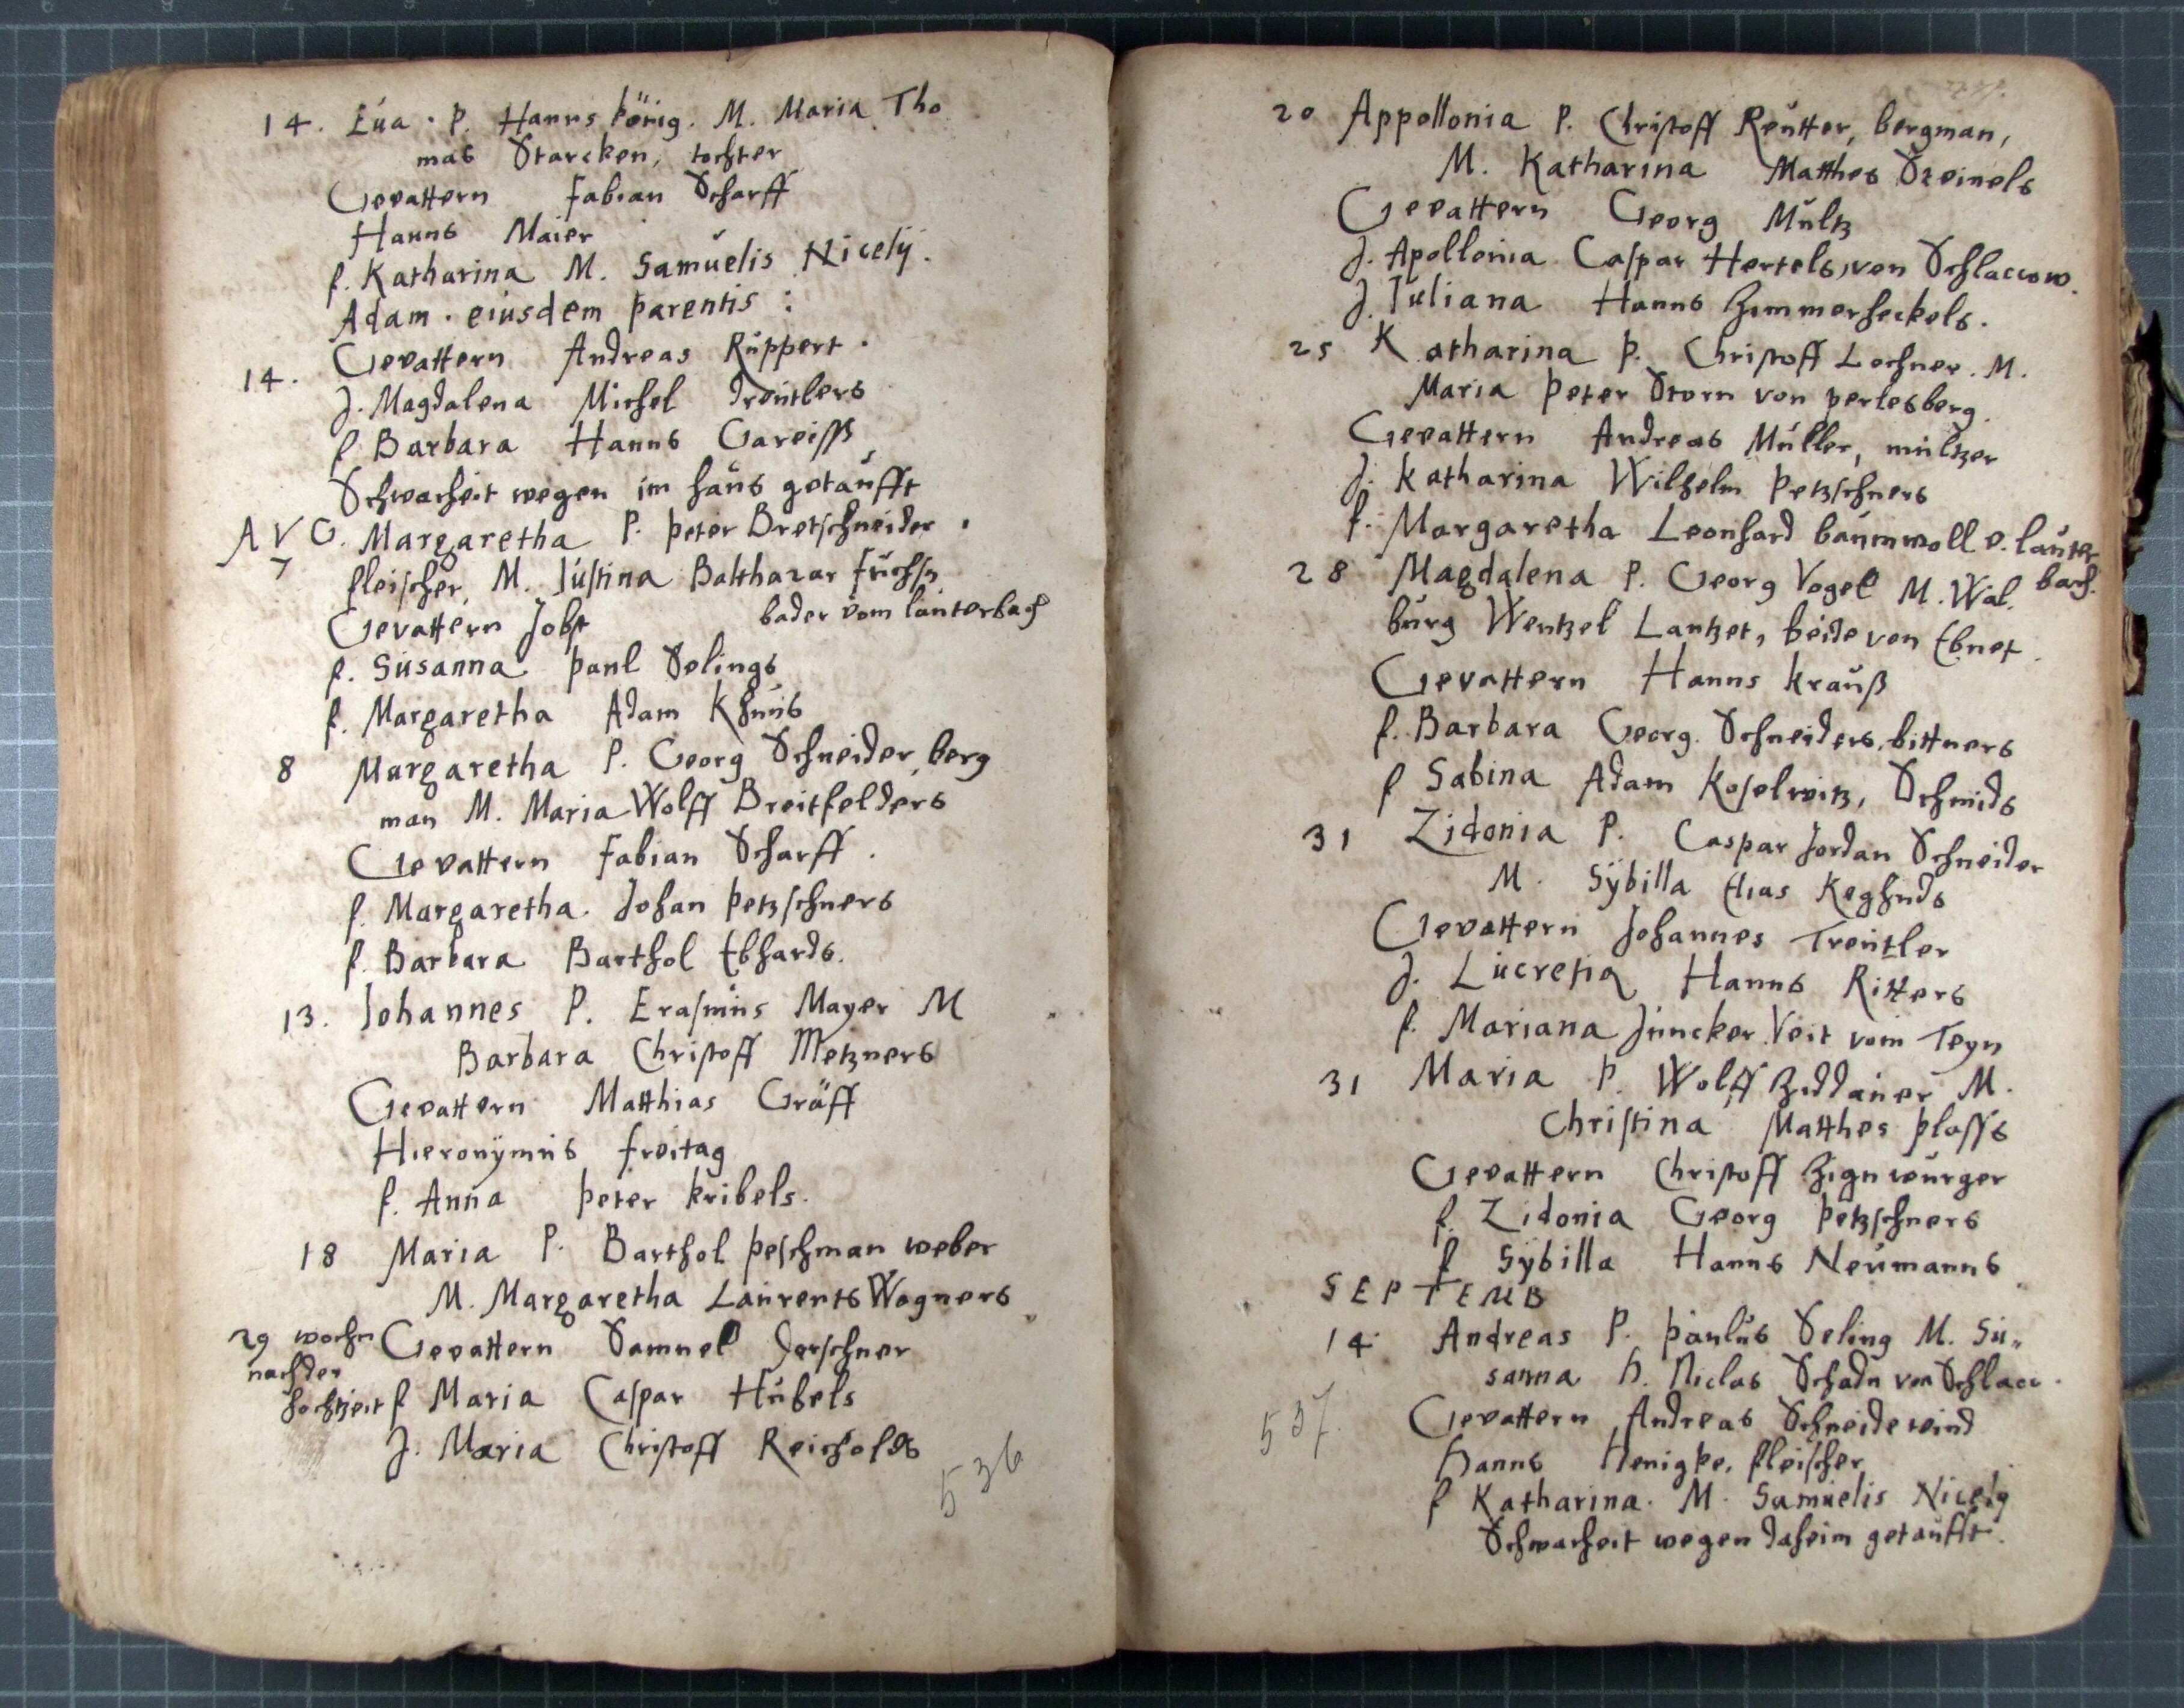 14. Eua. P. Hanns König. M. Maria Tho
mas Starcken, tochter
Gevattern Fabian Scharff
Hanns Maier
f. Katharina M. Samuelis Nicely.
Adam. eiusdem parentis:
14. Gevattern Andreas Ruppert.
J. Magdalena Michel Treutlers
f Barbara Hanns Gareiss
Schwacheit wegen im haus getaufft
AVG.
7 Margaretha P. Peter Bretschneider.
fleischer, M. Justina Balthazar Fuchsn
bader vom lauterbach
Gevattern Jobst
f. Susanna Paul Selings
f. Margaretha Adam Khuns
8 Margaretha P. Georg Schneider, berg
man M. Maria Wolff Breitfelders
Gevattern Fabian Scharff.
f. Margaretha. Johan Petzschners
f. Barbara Barthol Ebhards.
13. Johannes P. Erasmus Mayer M
Barbara Christoff Metzners
Gevattern Matthias Gräff
Hieronymus freitag
f. Anna Peter kribels.
18 Maria P. Barthol Peschman weber
M. Margaretha Laurents Wagners
29 wochn
nach der
hochtzeit
Gevattern Samuel Jerschner
f Maria Caspar Hubels
J. Maria Christoff Reicholds
536
20 Appollonia P. Christoff Reutter, bergman,
M. Katharina Matthes
Gevattern Georg Multz
J. Apollonia Caspar Hertels, von Schlaccow.
J. Juliana Hanns Zimmerheckels.
25 Katharina P. Christoff Lochner. M.
Maria Peter Storn von perlesberg.
Gevattern Andreas Müller, mültzer
J. Katharina Wilhelm Petzschners
f. Margaretha Leonhard baumwoll v. lauter
bach.
28 Magdalena P. Georg Vogel M. Wal.
burg Wentzel Lantzet, beide von Ebnet.
Gevattern Hanns krauß
f. Barbara Georg Schneiders, bittners
f Sabina Adam Koselwitz, Schmids
31 Zidonia P. Caspar Jordan Schneider
M. Sybilla Elias
Gevattern Johannes Treutler
J. Lucretia Hanns Ritters
f. Mariana Juncker Veit vom Teyn
31 Maria P. Wolff M.
Christina Matthes plasss
Gevattern Christoff Zignwürger
f. Zidonia Georg Petzschners
f Sybilla Hanns Neumanns
SEPTEMB
14. Andreas P. Paulus Seling M. Su„
sanna H. Niclas Schadn von Schlacc.
537.
Gevattern Andreas Schneidewind
Hanns Henigke, fleischer
f Katharina. M. Samuelis Nicely
Schwacheit wegen daheim getaufft.